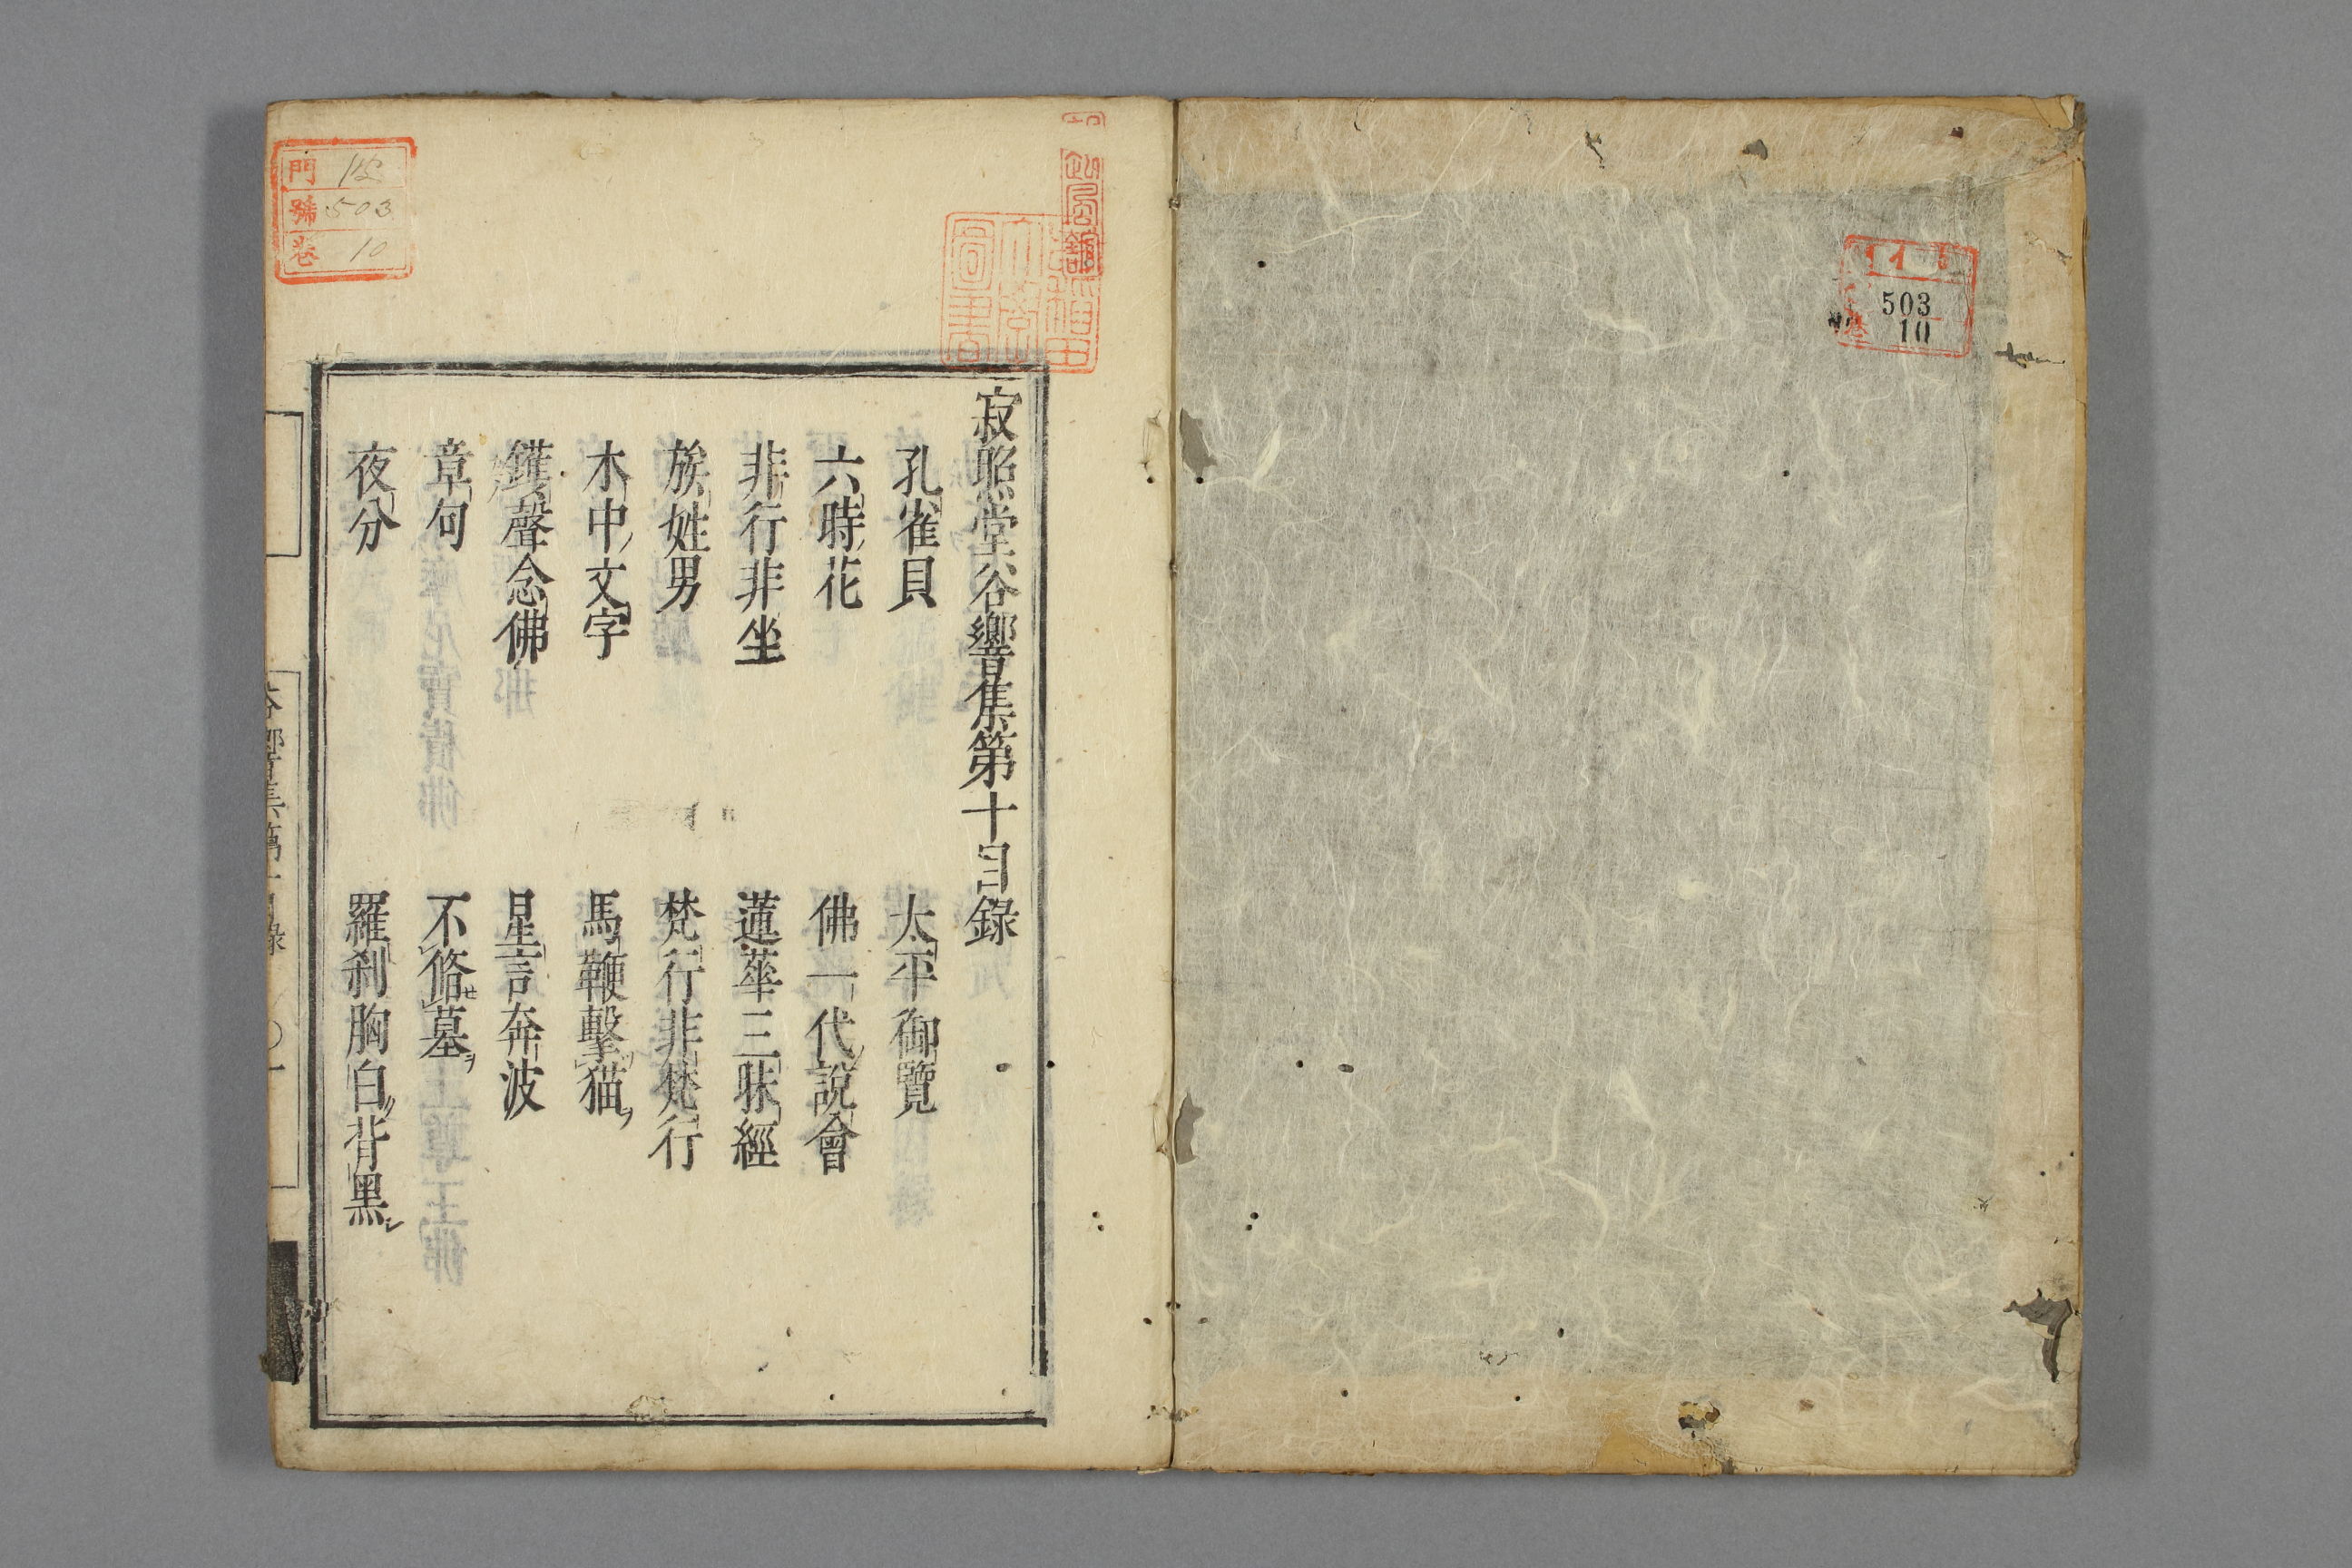 503
10
寂照堂谷響集第十目録
孔雀貝
太平御覽
六時花
佛一代說會
非行非坐
蓮華三昧經
族姓男
梵行非梵行
木中文字
馬鞭擊猫ヲ
鐘聲念佛
星言奔波
章句
不脩セ墓ヲ
夜分
羅刹胸白ク背黒シ
門
號 503
卷 10
早稲田
大學
圖書